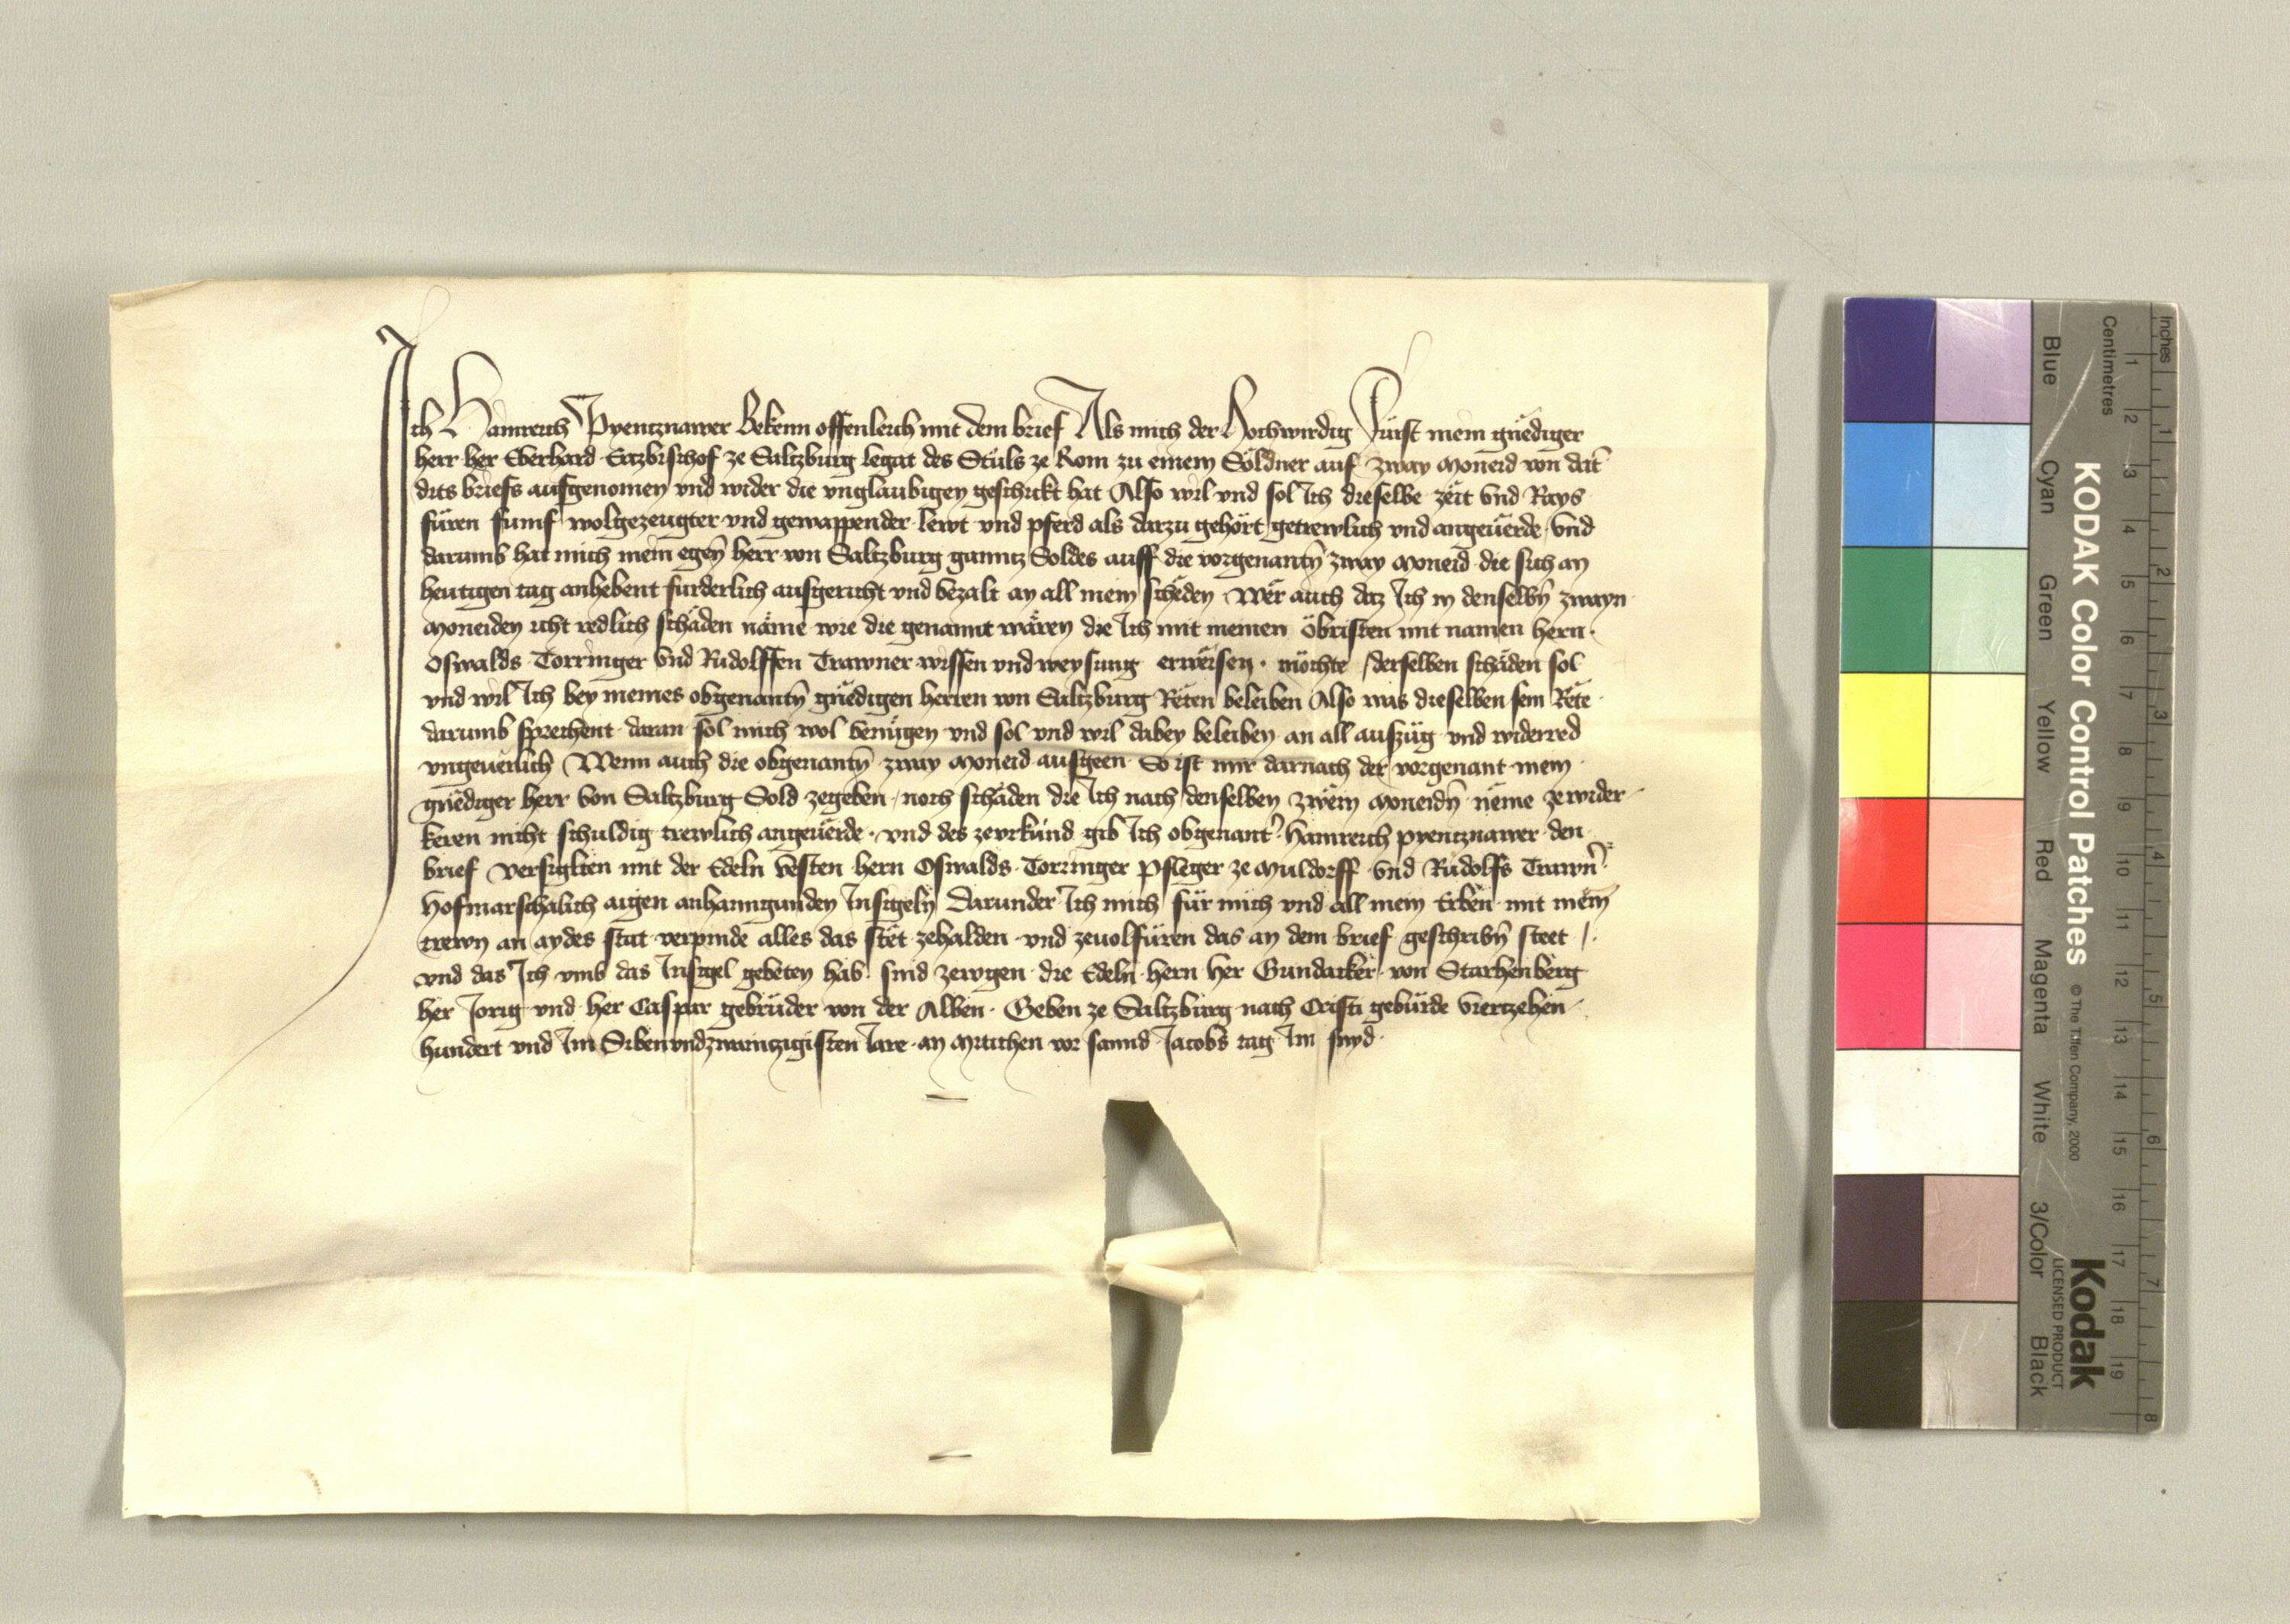 Ich Hainreich Pyentznawer Bekenn offenleich mit dem brief Als mich der Hochwirdig Fürst mein gnëdiger
herr her Eberhard Ertzbischof ze Saltzburg legat des Stůls ze Rom zu einem Söldner auf zway Moneid von dat̄
dits briefs aufgenomen vnd wider die vnglaubigen geschickt hat Also wil vnd sol Ich dieselbe zeit vnd Rays
füren fumf wolgezeugter vnd gewappender lewt vnd pferd als darzu gehört getrewlich vnd angeuërde vnd
darumb hat mich mein egen̄ herr von Saltzburg ganntz Soldes auff die vorgenantn̄ zway Moneid die sich an
heutigen tag anhebent furderlich ausgericht vnd bezalt an all mein schëden Wër auch daz Ich in denselbn̄ zwayn
Moneiden icht redlich schäden näme wie die genannt wären die Ich mit meinen Öbristen mit namen hern
Oswalds Torringer vnd Rudolffen Trawner wissen vnd weysung erweisen möchte derselben schäden sol
vnd wil Ich bey meines obgenantn̄ gnëdigen herren von Saltzburg Rëten beleiben Also was dieselben sein Rëte
darumb sprechent daran sol mich wol benügen vnd sol vnd wil dabey beleiben an all auszüg vnd widerred
vngeuërlich Wenn auch die obgenantn̄ zway Moneid ausgeen So ist mir darnach der vorgenant mein
gnëdiger herr von Saltzburg Sold zegeben noch schäden die Ich nach denselben zwein Moneidn̄ nëme zewider
keren nicht schuldig trewlich angeuërde vnd des zevrkünd gib Ich obgenant̄ Hainreich pyentznawer den
brief versiglten mit der Edeln vesten hern Oswalds Torringer Pfleger ze Muldorff vnd Rudolfs Trawn̄
Hofmarschalich aigen anhanngunden Insigeln Darunder Ich mich für mich vnd all mein Erben mit mein̄
trewn an aydes stat verpinde alles das stët zehalden vnd zeuolfüren das an dem brief geschribn̄ steet
vnd das Ich vmb das Insigel gebeten hab sind zewgen die Edeln hern her Gundacker von Starhenberg
her Jorig vnd her Caspar gebrüder von der Alben Geben ze Saltzburg nach Cristi gebürde Viertzehen
hundert vnd Im Sibenvndzwaintzigisten Jare an Mitichen vor sannd Jacobs tag Im snyd
KODAK Color Control Patches © The Tiffen Company, 2000
Kodak
LICENSED PRODUCT
Blue Cyan Green Yellow Red Magenta White 3/Color Black
Centimetres 1 2 3 4 5 6 7 8 9 10 11 12 13 14 15 16 17 18 19
Inches 1 2 3 4 5 6 7 8